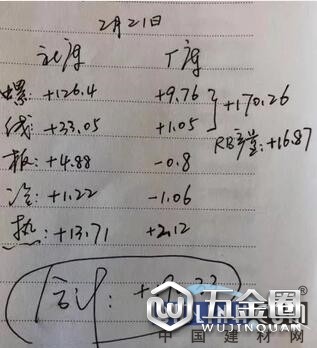 2月21日
社库 厂库
螺: +126.4 +9.76 +170.26
线: +33.05 +1.05 RB产量: +16.87
板: +4.88 -0.8
冷: +1.22 -1.06
热: +13.71 +2.12
合计:
五金圈
WUJINQUAN.COM
中国建材网